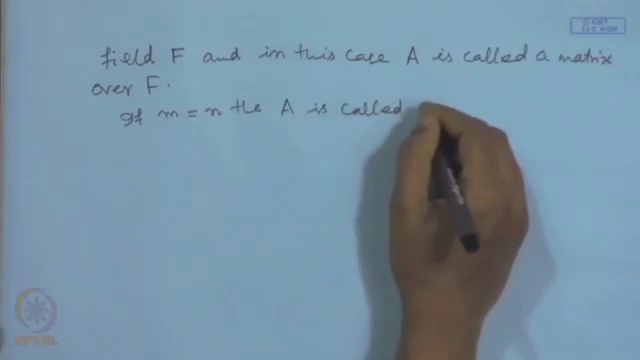 © CET
I.I.T. KGP
field F and in this case A is called a matrix
over F.
If m = n the A is called
NPTEL